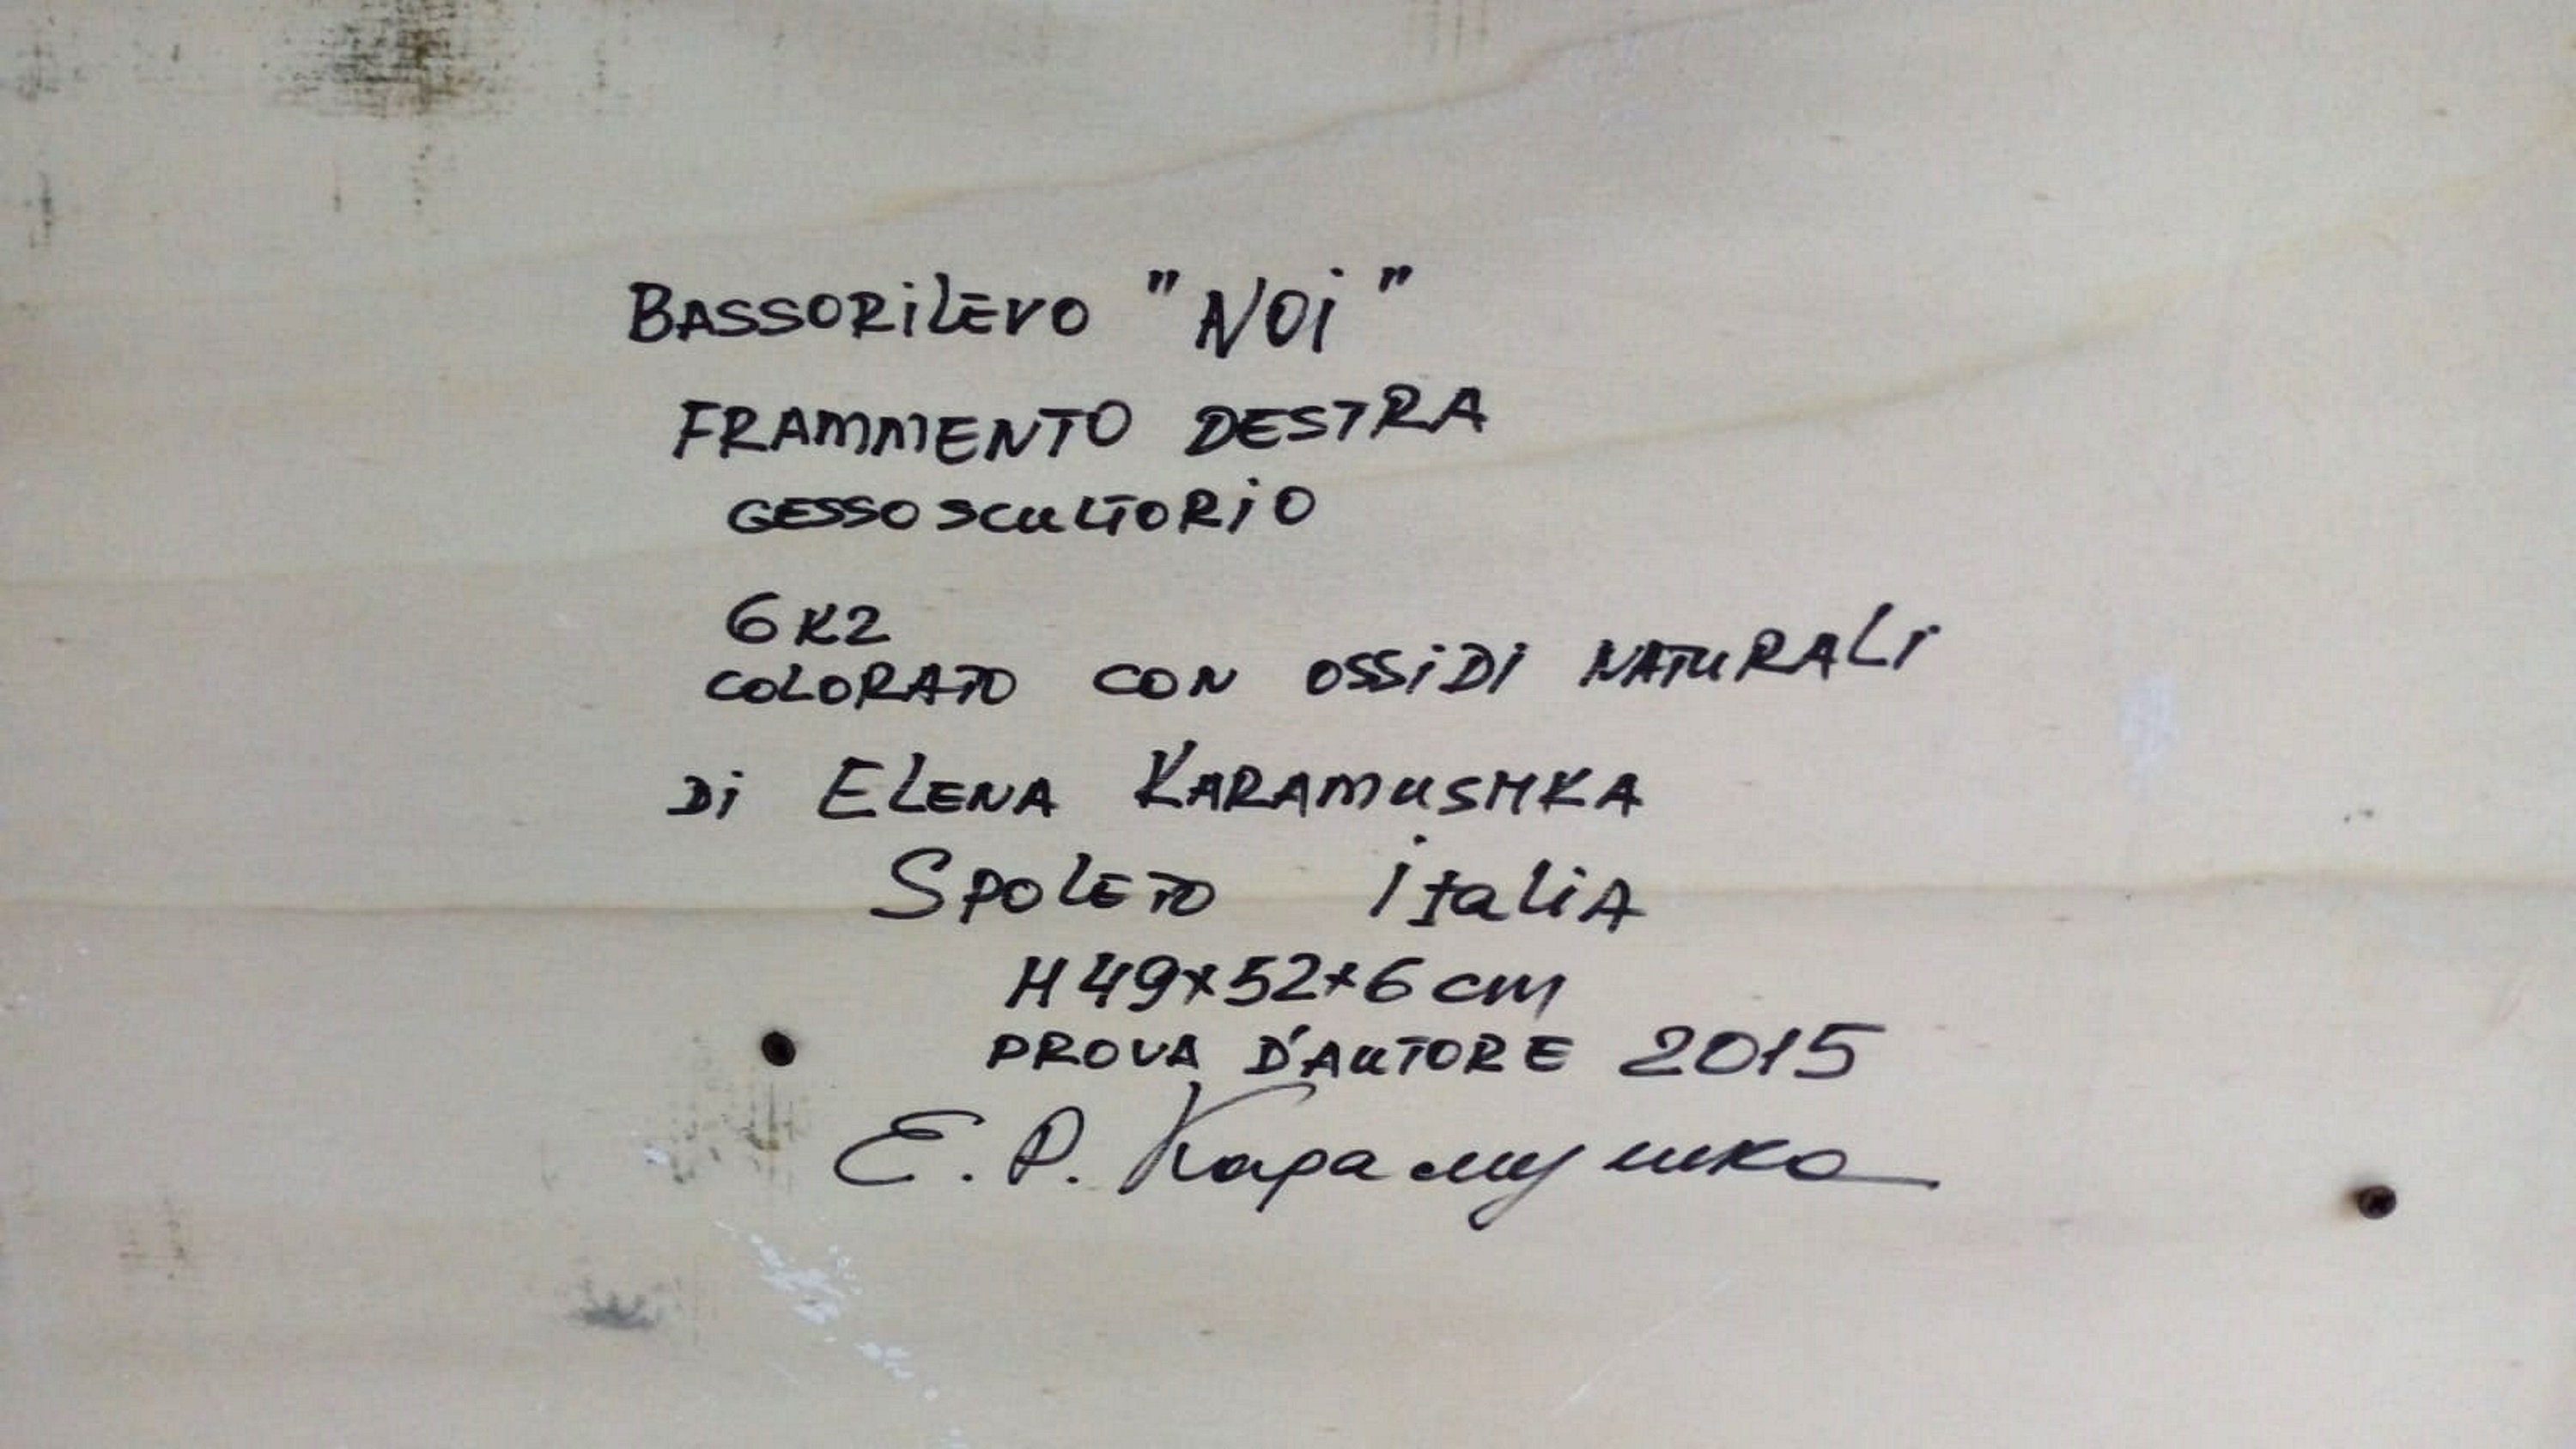 BASSORiLEVO "NOi"
FRAMMENTO DESTRA
GESSO SCULTORiO
6K2
COLORATO CON OSSiDi NATURALi
Di ELENA KARAMUSHKA
SPOLETO iTALiA
H 49x52x6 cm
PROVA D'AUTORE 2015
Е. Р. Карамушка